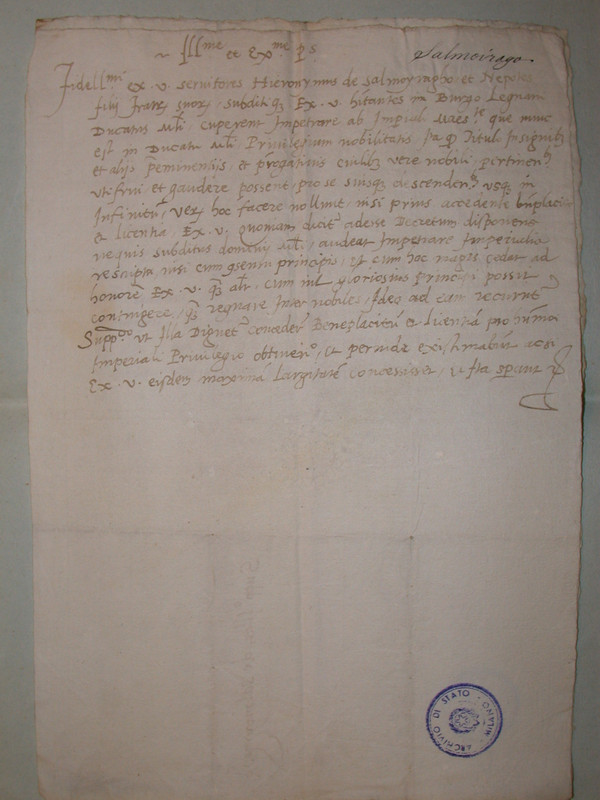 Ill.me et Ex.me p.s
Salmoirago.
Fidell.mi ex. v. servitores Hieronymus de Salmoyragho, et Nepotes
filij fratrꝫ suorꝫ, subditi qꝫ Ex. V. hitantes in Burgo Legnani
Ducatus Mli, cuperent Impetrare ab Imperiali Maes.te que nunc
est in Ducatu Mli Privilegium nobilitatis, Ita qd Titul. Insignibꝫ
et alijs preminentijs, et prerogativis quibꝫ vere nobili pertinen.
uti frui et gaudere possent, pro se suisqꝫ descenden. usqꝫ in
Infinitū, Verꝫ hoc facere nollunt, nisi prius accedente bnplacito
et licentia Ex. V. quoniam dicitꝰ adesse Decretum disponens
nequis subditus dominij Mli, audeat Impetrare Imperialia
rescripta, nisi cum cōsensu principis, et cum hoc magis cedat ad
honorē Ex. V. qꝫ alr, cum nil gloriosius Principi possit
contingere, qꝫ regnare Inter nobiles, Ideo ad eam recurrūt
Supp.do ut Illa Dignetꝰ concedere Beneplacitū et Licentiā pro
Imperiali Privilegio obtinen., Et perinde existimabūt ac si
Ex. V. eisdem maximā Largitatē concessisset, et Ita sperant
ARCHIVIO DI STATO · MILANO